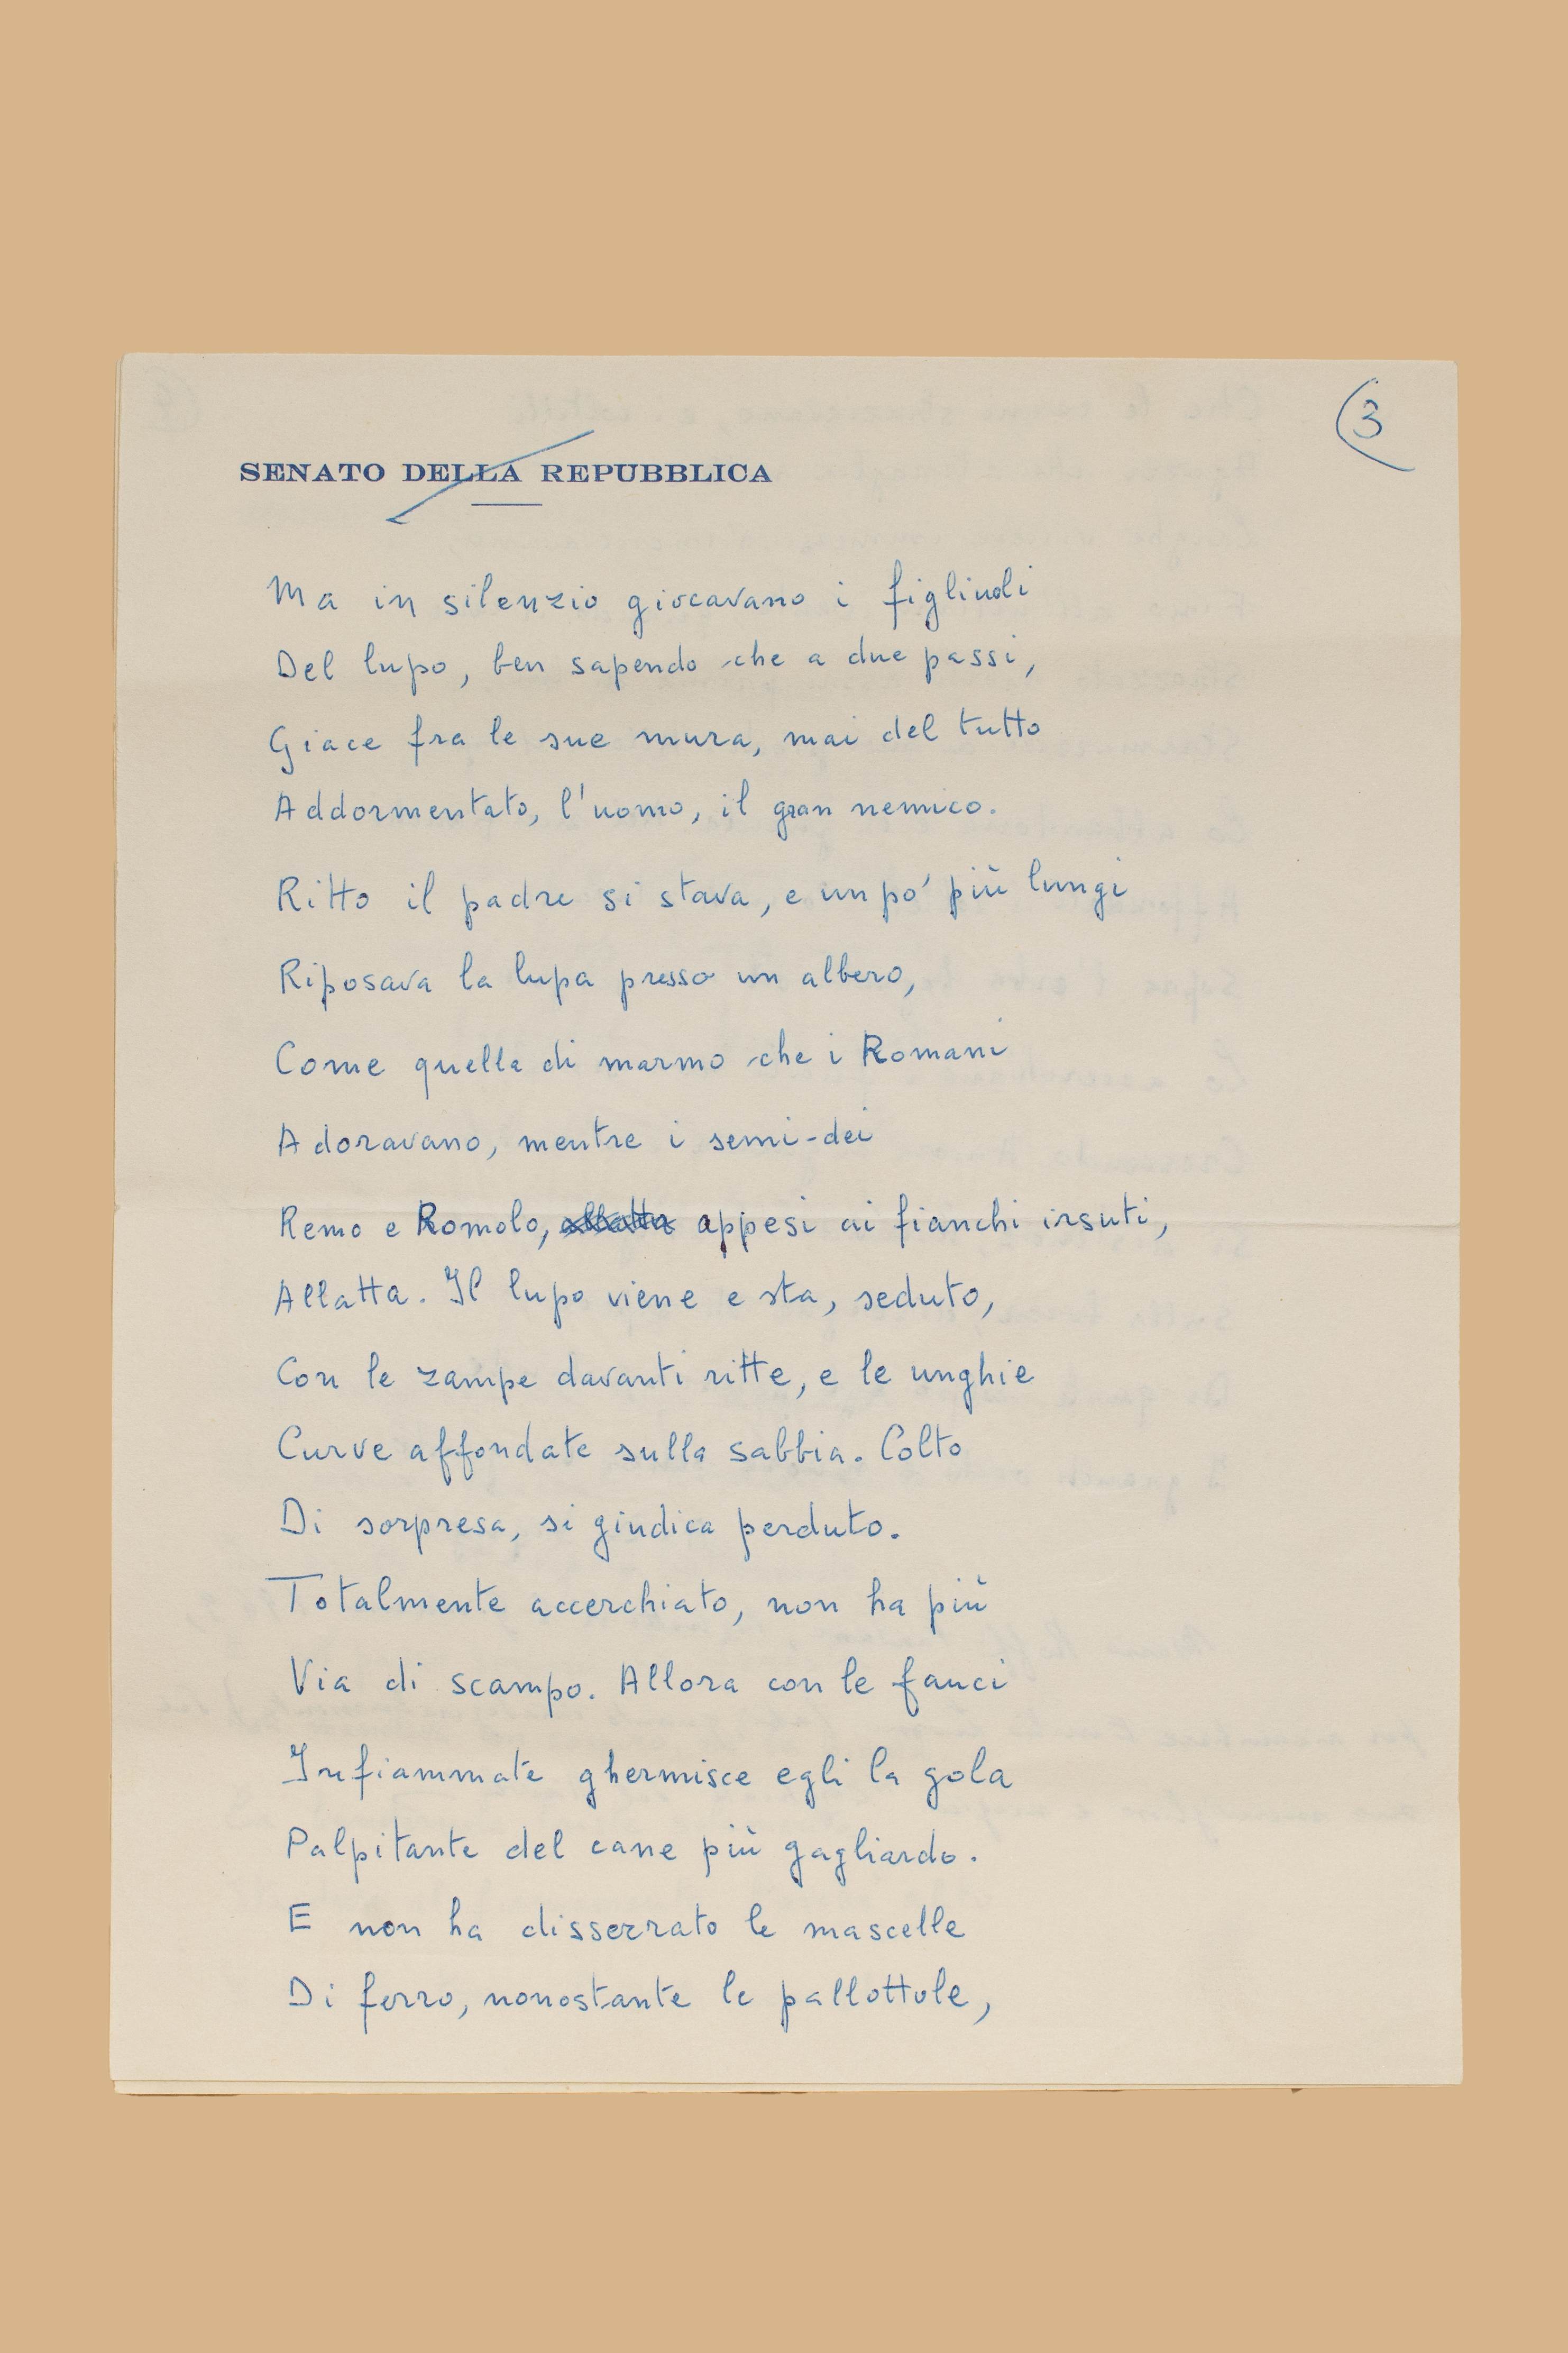 3
SENATO DELLA REPUBBLICA
Ma in silenzio giocavano i figliuoli
Del lupo, ben sapendo che a due passi,
Giace fra le sue mura, mai del tutto
Addormentato, l'uomo, il gran nemico.
Ritto il padre si stava, e un po' più lungi
Riposava la lupa presso un albero,
Come quella di marmo che i Romani
Adoravano, mentre i semi-dei
Remo e Romolo, allatta appesi ai fianchi irsuti,
Allatta. Il lupo viene e sta, seduto,
Con le zampe davanti ritte, e le unghie
Curve affondate sulla sabbia. Colto
Di sorpresa, si giudica perduto.
Totalmente accerchiato, non ha più
Via di scampo. Allora con le fauci
Infiammate ghermisce egli la gola
Palpitante del cane più gagliardo.
E non ha disserrato le mascelle
Di ferro, nonostante le pallottole,